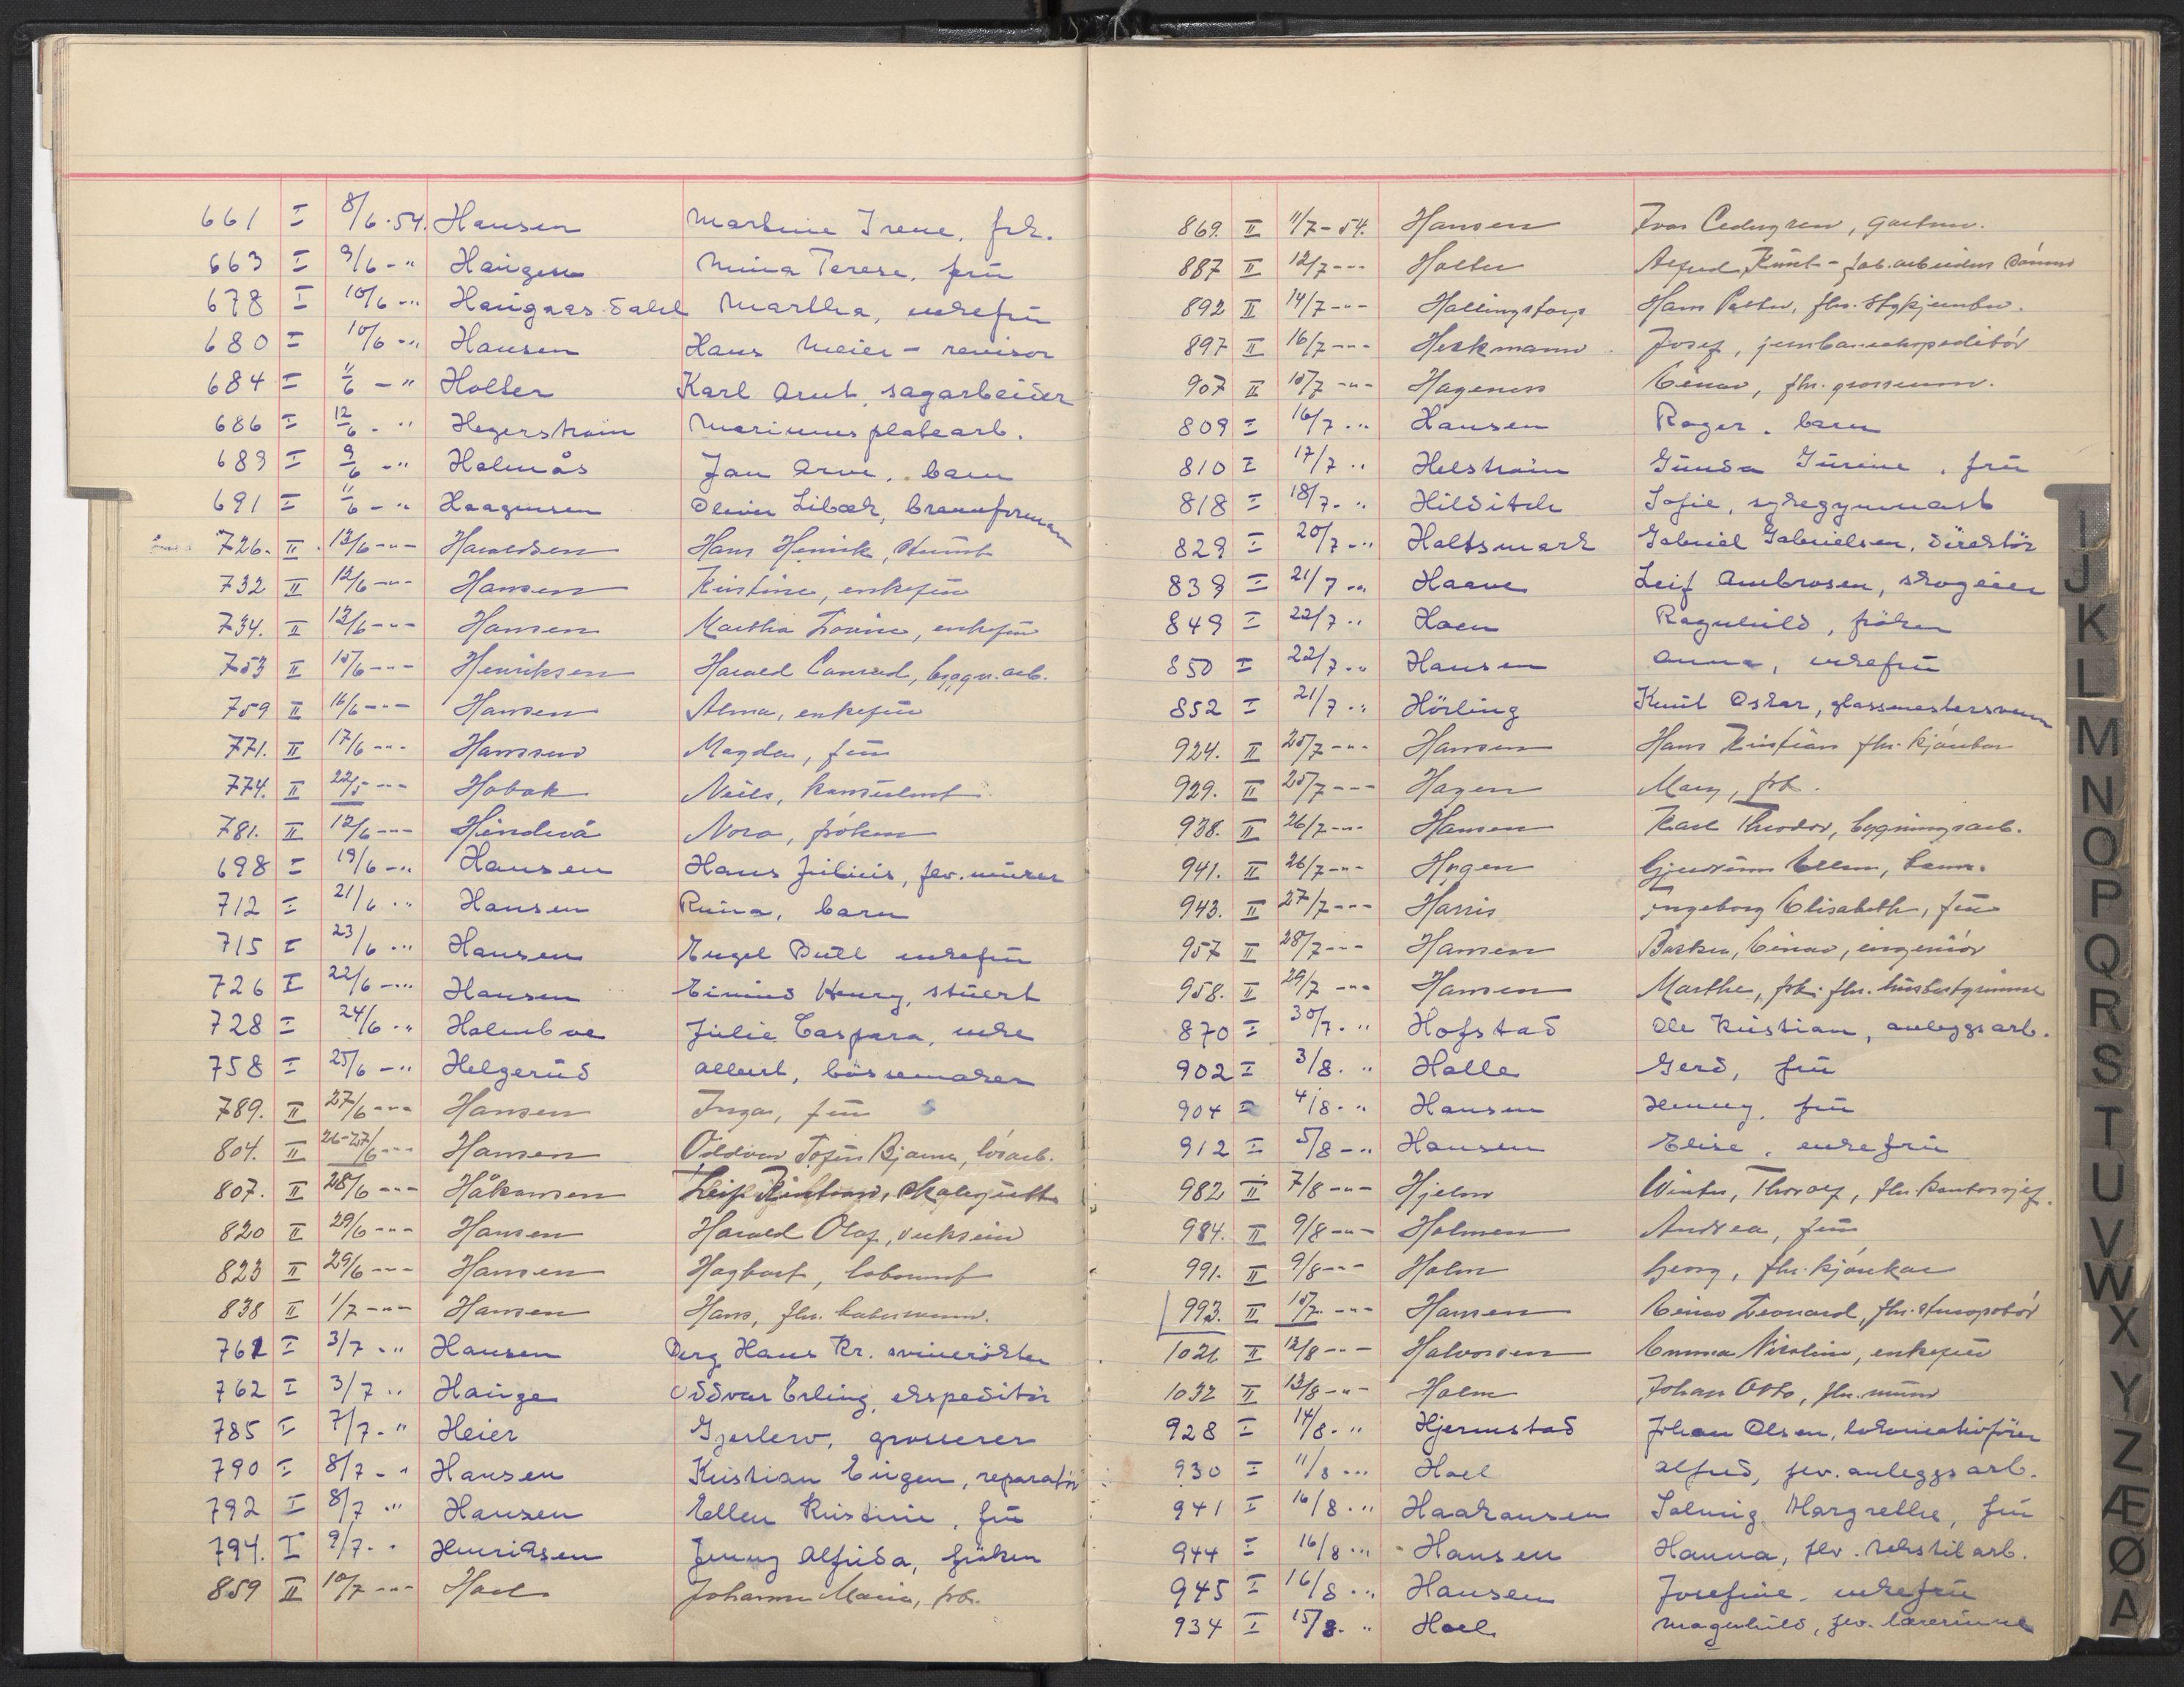 661 I 8/6-54. Hansen Martine Irene, frk.
663 I 9/6-" Haugen Mina Terese, frü
678 I 10/6-" Haugaas-Dahl Martha, enkefrü
680 I 10/6-" Hansen Hans Meier - revisor
684 I 11/6-" Holter Karl Arnt, sagarbeider
686 I 12/6-" Hegerstrøm Marinius platearb.
689 I 9/6-" Holmås Jan Arve, barn
691 I 11/6-" Haagensen Oliver Libæk, brannforman
726. II 13/6-"- Haraldsen Hans Henrik, stuert
732 II 12/6-"- Hansen Kristine, enkefrü
734. II 12/6-"- Hansen Martha Lovise, enkefrü
753 II 15/6-"- Henriksen Harald Conrad, bygn. arb.
759 II 16/6-"- Hansen Alma, enkefrü
771. II 17/6-"- Hanssen Magda, frü
774. II 22/5-"- Hobak Neils, konsulent
781. II 12/6-"- Nora, fröken
698 I 19/6-" Hansen Hans Julius, fev. murer
712 I 21/6-" Hansen Runa, barn
715 I 23/6-" Hansen Engel Bull enkefrü
726 I 22/6-" Hansen Eivind Henry, stuert
728 I 24/6-" Holmboe Julie Caspara, enke
758 I 25/6-" Helgerud Albert, börsemaker
789. II 27/6-"- Hansen Inga, frü
804. II 26-27/6-"- Hansen Oddvar Bjarne, lösarb.
807. II 28/6-"- Håkonsen Leif Kristian, skoleguttt
820 II 29/6-"- Hansen Harald Olaf,
823 II 29/6-"- Hansen Hagbart, laborant
838 II 1/7-"- Hansen Hans, fhv.
761 I 3/7-" Hansen Berg Hans Kr. svinerökter
762 I 3/7-" Hauge Oddvar Erling, ekspeditör
785 I 7/7-" Heier Gjerlew, grosserer
790 I 8/7-" Hansen Kristian Eugen, reparatör
792 I 8/7-" Hansen Ellen Kristine, frü
794. I 9/7-" Henriksen Jenny Alfrida, fröken
859 II 10/7-"- Hoel Johanne Marie, frk.
869. II 11/7-54. Hansen Ivar Cedergren, gartner.
887 II 12/7-"- Holter Alfred Knut - fab. arbeider
892 II 14/7-"- Hallingstorp Hans Petter, fhv.
897 II 16/7-"- Heckmann Josef, jernbaneekspeditör
907 II 15/7-"- Hageness Einar, fhv. grosserer.
809 I 16/7-" Hansen Roger, barn
810 I 17/7-" Helström Gunda Gurine, frü
818 I 18/7-" Hilditch Sofie, sykegymnast
829 I 20/7-" Holtsmark Gabriel Gabrielsen, direktör
839 I 21/7-" Haave Leif Ambrosen, skogeier
849 I 22/7-" Hoen Ragnhild, fröken
850 I 22/7-" Hansen Anna, enkefrü
852 I 21/7-" Hörling Knut Oskar, glassmestersvenn
924. II 25/7-"- Hansen Hans Kristian fhv. kjörekar
929. II 25/7-"- Hagen Mary, frk.
938. II 26/7-"- Hansen Karl Theodor, bygningsarb.
941. II 26/7-"- Hagen Gjertrun Ellen, barn.
943. II 27/7-"- Harris Ingeborg Elisabeth, frü
957 II 28/7-"- Hansen Einar, ingeniör
958. II 29/7-"- Hansen Marthe, frk. fhv. husbestyrinne
870 I 30/7-" Hofstad Ole Kristian, anleggsarb.
902 I 3/8-" Holle Gerd, frü
904 I 4/8-" Hansen Henny, frü
912 I 5/8-" Hansen Elise, enkefrü
982 II 7/8-"- Hjelm Winter, Thoralf, fhv. kontorsjef.
984. II 9/8-"- Holmen Andrea, frü
991. II 9/8-"- Holm Georg, fhv. kjörekar
993. II 15/7-"- Hansen Einar Leonard, fhv.
1021 II 12/8-"- Halvorsen Emma Nicoline, enkefrü
1032 II 13/8-"- Holm Johan Otto, fhv. murer
928 I 14/8-" Hjermstad Johan Olsen, lokomotivförer
930 I 11/8-" Hoel Alfred, fev. anleggsarb.
941 I 16/8-" Haakonsen Solveig Margrethe, frü
944 I 16/8-" Hansen Hanna, fev. tekstilarb.
945 I 16/8-" Hansen Josefine, enkefrü
934 I 15/8-" Hoel Magnhild, fev. lærerinne
I
J
K
L
M
N
O
P
Q
R
S
T
U
V
W
X
Y
Z
Æ
Ø
A